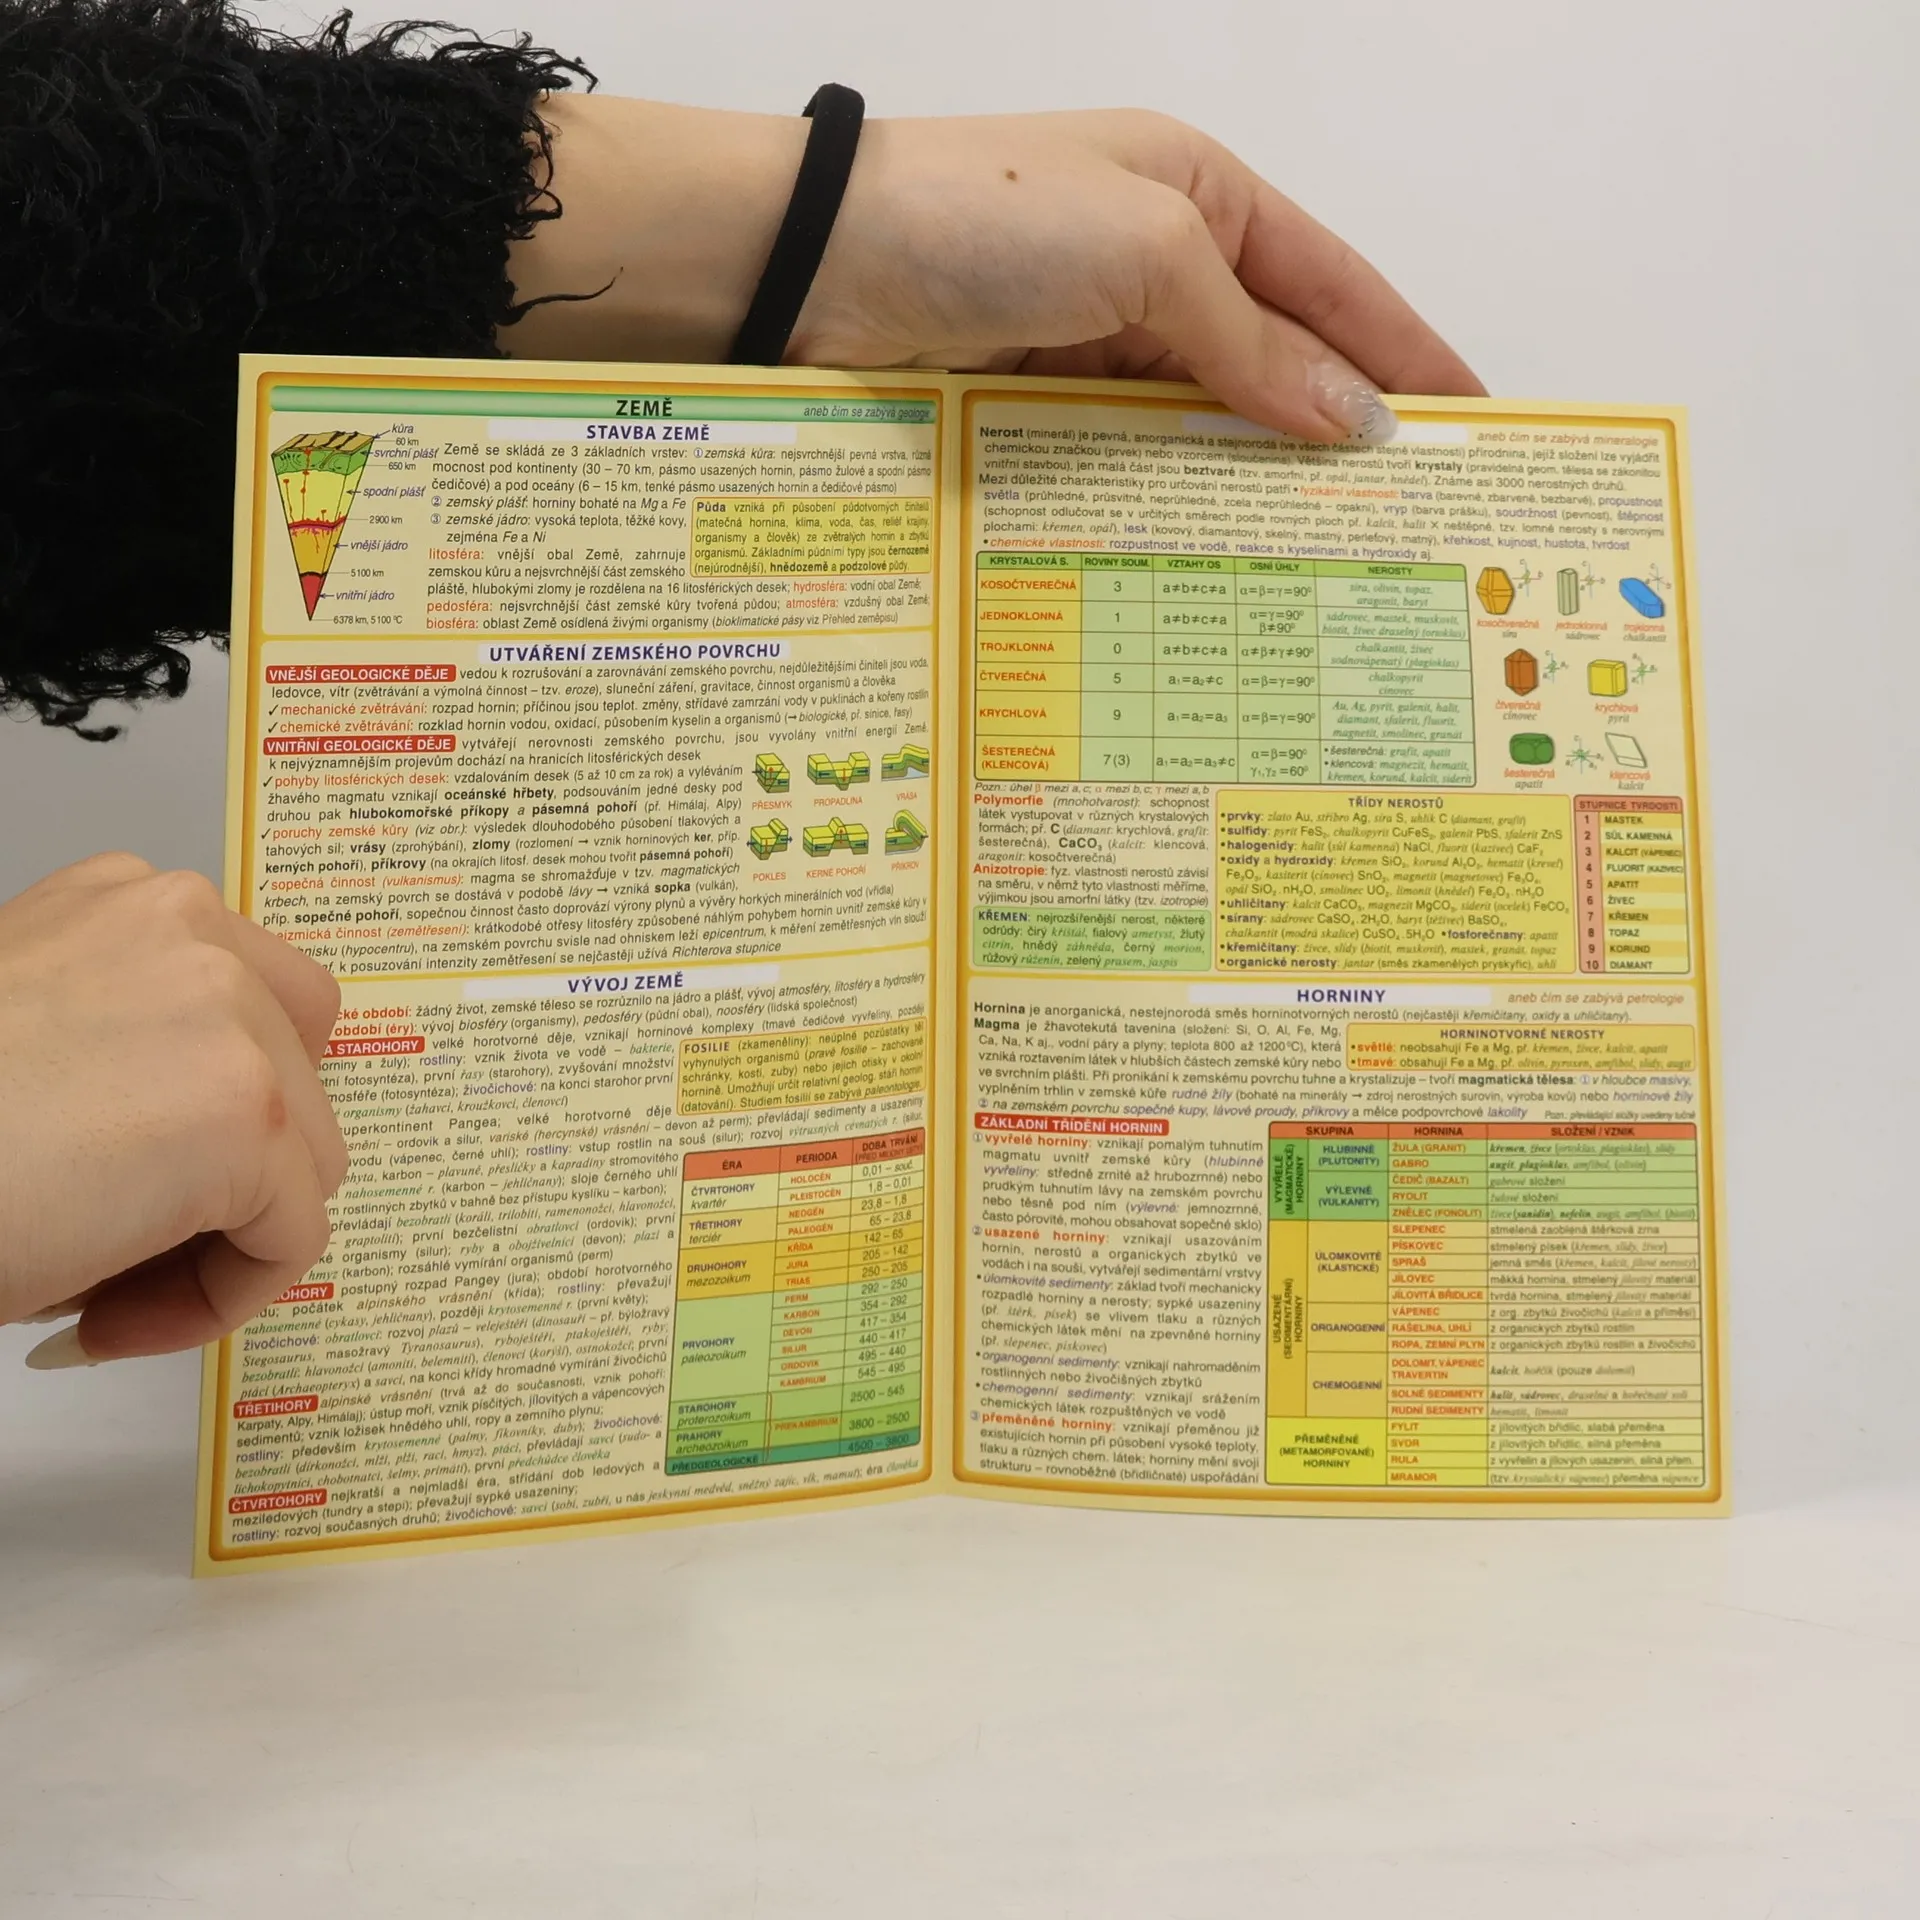 ZEMĚ
aneb čím se zabývá geologie
STAVBA ZEMĚ
kůra
60 km
svrchní plášť
650 km
spodní plášť
2900 km
vnější jádro
5100 km
vnitřní jádro
6378 km, 5100 °C
Země se skládá ze 3 základních vrstev: ① zemská kůra: nejsvrchnější pevná vrstva, různá
mocnost pod kontinenty (30 – 70 km, pásmo usazených hornin, pásmo žulové a spodní pásmo
čedičové) a pod oceány (6 – 15 km, tenké pásmo usazených hornin a čedičové pásmo)
② zemský plášť: horniny bohaté na Mg a Fe
③ zemské jádro: vysoká teplota, těžké kovy,
zejména Fe a Ni
Půda vzniká při působení půdotvorných činitelů
(matečná hornina, klima, voda, čas, reliéf krajiny,
organismy a člověk) ze zvětralých hornin a zbytků
organismů. Základními půdními typy jsou černozemě
(nejúrodnější), hnědozemě a podzolové půdy.
litosféra: vnější obal Země, zahrnuje
zemskou kůru a nejsvrchnější část zemského
pláště, hlubokými zlomy je rozdělena na 16 litosférických desek; hydrosféra: vodní obal Země;
pedosféra: nejsvrchnější část zemské kůry tvořená půdou; atmosféra: vzdušný obal Země;
biosféra: oblast Země osídlená živými organismy (bioklimatické pásy viz Přehled zeměpisu)
UTVÁŘENÍ ZEMSKÉHO POVRCHU
VNĚJŠÍ GEOLOGICKÉ DĚJE vedou k rozrušování a zarovnávání zemského povrchu, nejdůležitějšími činiteli jsou voda,
ledovce, vítr (zvětrávání a výmolná činnost – tzv. eroze), sluneční záření, gravitace, činnost organismů a člověka
✓mechanické zvětrávání: rozpad hornin; příčinou jsou teplot. změny, střídavé zamrzání vody v puklinách a kořeny rostlin
✓chemické zvětrávání: rozklad hornin vodou, oxidací, působením kyselin a organismů (→ biologické, př. sinice, řasy)
VNITŘNÍ GEOLOGICKÉ DĚJE vytvářejí nerovnosti zemského povrchu, jsou vyvolány vnitřní energií Země,
k nejvýznamnějším projevům dochází na hranicích litosférických desek
✓pohyby litosférických desek: vzdalováním desek (5 až 10 cm za rok) a vyléváním
žhavého magmatu vznikají oceánské hřbety, podsouváním jedné desky pod
druhou pak hlubokomořské příkopy a pásemná pohoří (př. Himálaj, Alpy)
✓poruchy zemské kůry (viz obr.): výsledek dlouhodobého působení tlakových a
tahových sil; vrásy (zprohýbání), zlomy (rozlomení → vznik horninových ker, příp.
kerných pohoří), příkrovy (na okrajích litosf. desek mohou tvořit pásemná pohoří)
✓sopečná činnost (vulkanismus): magma se shromažďuje v tzv. magmatických
krbech, na zemský povrch se dostává v podobě lávy → vzniká sopka (vulkán),
příp. sopečné pohoří, sopečnou činnost často doprovází výrony plynů a vývěry horkých minerálních vod (vřídla)
eizmická činnost (zemětřesení): krátkodobé otřesy litosféry způsobené náhlým pohybem hornin uvnitř zemské kůry v
hnisku (hypocentru), na zemském povrchu svisle nad ohniskem leží epicentrum, k měření zemětřesných vln slouží
af, k posuzování intenzity zemětřesení se nejčastěji užívá Richterova stupnice
PŘESMYK
PROPADLINA
VRÁSA
POKLES
KERNÉ POHOŘÍ
PŘÍKROV
VÝVOJ ZEMĚ
cké období: žádný život, zemské těleso se rozrůznilo na jádro a plášť, vývoj atmosféry, litosféry a hydrosféry
období (éry): vývoj biosféry (organismy), pedosféry (půdní obal), noosféry (lidská společnost)
A STAROHORY velké horotvorné děje, vznikají horninové komplexy (tmavé čedičové vyvřeliny, později
orniny a žuly); rostliny: vznik života ve vodě – bakterie,
tní fotosyntéza), první řasy (starohory), zvyšování množství
mosféře (fotosyntéza); živočichové: na konci starohor první
í organismy (žahavci, kroužkovci, členovci)
FOSILIE (zkameněliny): neúplné pozůstatky těl
vyhynulých organismů (pravé fosilie – zachované
schránky, kosti, zuby) nebo jejich otisky v okolní
hornině. Umožňují určit relativní geolog. stáří hornin
(datování). Studiem fosilií se zabývá paleontologie.
uperkontinent Pangea; velké horotvorné děje
ásnění – ordovik a silur, variské (hercynské) vrásnění – devon až perm); převládají sedimenty a usazeniny
vodu (vápenec, černé uhlí); rostliny: vstup rostlin na souš (silur); rozvoj výtrusných cévnatých r. (silur,
phyta, karbon – plavuně, přesličky a kapradiny stromovitého
nahosemenné r. (karbon – jehličnany); sloje černého uhlí
m rostlinných zbytků v bahně bez přístupu kyslíku – karbon);
převládají bezobratlí (koráli, trilobiti, ramenonožci, hlavonožci,
– graptoliti); první bezčelistní obratlovci (ordovik); první
ké organismy (silur); ryby a obojživelníci (devon); plazi a
hmyz (karbon); rozsáhlé vymírání organismů (perm)
OHORY postupný rozpad Pangey (jura); období horotvorného
idu; počátek alpinského vrásnění (křída); rostliny: převažují
nahosemenné (cykasy, jehličnany), později krytosemenné r. (první květy);
živočichové: obratlovci: rozvoj plazů – veleještěři (dinosauři – př. býložravý
Stegosaurus, masožravý Tyranosaurus), ryboještěři, ptakoještěři, ryby;
bezobratlí: hlavonožci (amoniti, belemniti), členovci (korýši), ostnokožci; první
ptáci (Archaeopteryx) a savci, na konci křídy hromadné vymírání živočichů
TŘETIHORY alpinské vrásnění (trvá až do současnosti, vznik pohoří:
Karpaty, Alpy, Himálaj); ústup moří, vznik písčitých, jílovitých a vápencových
sedimentů; vznik ložisek hnědého uhlí, ropy a zemního plynu;
rostliny: především krytosemenné (palmy, fíkovníky, duby); živočichové:
bezobratlí (dírkonožci, mlži, plži, raci, hmyz), ptáci, převládají savci (sudo- a
lichokopytníci, chobotnatci, šelmy, primáti), první předchůdce člověka
ČTVRTOHORY nejkratší a nejmladší éra, střídání dob ledových a
meziledových (tundry a stepi); převažují sypké usazeniny;
rostliny: rozvoj současných druhů; živočichové: savci (sobi, zubři, u nás jeskynní medvěd, sněžný zajíc, vlk, mamut); éra člověka
ÉRA PERIODA DOBA TRVÁNÍ
ČTVRTOHORY kvartér HOLOCÉN 0,01 – souč.
PLEISTOCÉN 1,8 – 0,01
TŘETIHORY terciér NEOGÉN 23,8 – 1,8
PALEOGÉN 65 – 23,8
DRUHOHORY mezozoikum KŘÍDA 142 – 65
JURA 205 – 142
TRIAS 250 – 205
PRVOHORY paleozoikum PERM 292 – 250
KARBON 354 – 292
DEVON 417 – 354
SILUR 440 – 417
ORDOVIK 495 – 440
KAMBRIUM 545 – 495
STAROHORY proterozoikum PREKAMBRIUM 2500 – 545
PRAHORY archeozoikum 3800 – 2500
PŘEDGEOLOGICKÉ 4500 – 3800
aneb čím se zabývá mineralogie
Nerost (minerál) je pevná, anorganická a stejnorodá (ve všech částech stejné vlastnosti) přírodnina, jejíž složení lze vyjádřit
chemickou značkou (prvek) nebo vzorcem (sloučenina). Většina nerostů tvoří krystaly (pravidelná geom. tělesa se zákonitou
vnitřní stavbou), jen malá část jsou beztvaré (tzv. amorfní, př. opál, jantar, hnědel). Známe asi 3000 nerostných druhů.
Mezi důležité charakteristiky pro určování nerostů patří • fyzikální vlastnosti: barva (barevné, zbarvené, bezbarvé), propustnost
světla (průhledné, průsvitné, neprůhledné, zcela neprůhledné – opakní), vryp (barva prášku), soudržnost (pevnost), štěpnost
(schopnost odlučovat se v určitých směrech podle rovných ploch př. kalcit, halit × neštěpné, tzv. lomné nerosty s nerovnými
plochami: křemen, opál), lesk (kovový, diamantový, skelný, mastný, perleťový, matný), křehkost, kujnost, hustota, tvrdost
• chemické vlastnosti: rozpustnost ve vodě, reakce s kyselinami a hydroxidy aj.
KRYSTALOVÁ S. ROVINY SOUM. VZTAHY OS OSNÍ ÚHLY NEROSTY
KOSOČTVEREČNÁ 3 a≠b≠c≠a α=β=γ=90° síra, olivín, topaz, aragonit, baryt
JEDNOKLONNÁ 1 a≠b≠c≠a α=γ=90° β≠90° sádrovec, mastek, muskovit, biotit, živec draselný (ortoklas)
TROJKLONNÁ 0 a≠b≠c≠a α≠β≠γ≠90° chalkantit, živec sodnovápenatý (plagioklas)
ČTVEREČNÁ 5 a₁=a₂≠c α=β=γ=90° chalkopyrit cínovec
KRYCHLOVÁ 9 a₁=a₂=a₃ α=β=γ=90° Au, Ag, pyrit, galenit, halit, diamant, sfalerit, fluorit, magnetit, smolinec, granát
ŠESTEREČNÁ (KLENCOVÁ) 7(3) a₁=a₂=a₃≠c α=β=90° γ₁,γ₂=60° • šesterečná: grafit, apatit • klencová: magnezit, hematit, křemen, korund, kalcit, siderit
kosočtverečná síra
jednoklonná sádrovec
trojklonná chalkantit
čtverečná cínovec
krychlová pyrit
šesterečná apatit
klencová kalcit
Pozn.: úhel β mezi a, c; α mezi b, c; γ mezi a, b
Polymorfie (mnohotvarost): schopnost
látek vystupovat v různých krystalových
formách; př. C (diamant: krychlová, grafit:
šesterečná), CaCO₃ (kalcit: klencová,
aragonit: kosočtverečná)
Anizotropie: fyz. vlastnosti nerostů závisí
na směru, v němž tyto vlastnosti měříme,
výjimkou jsou amorfní látky (tzv. izotropie)
KŘEMEN: nejrozšířenější nerost, některé
odrůdy: čirý křišťál, fialový ametyst, žlutý
citrín, hnědý záhněda, černý morion,
růžový růženín, zelený prasem, jaspis
TŘÍDY NEROSTŮ
•prvky: zlato Au, stříbro Ag, síra S, uhlík C (diamant, grafit)
•sulfidy: pyrit FeS₂, chalkopyrit CuFeS₂, galenit PbS, sfalerit ZnS
•halogenidy: halit (sůl kamenná) NaCl, fluorit (kazivec) CaF₂
•oxidy a hydroxidy: křemen SiO₂, korund Al₂O₃, hematit (krevel)
Fe₂O₃, kasiterit (cínovec) SnO₂, magnetit (magnetovec) Fe₃O₄,
opál SiO₂.nH₂O, smolinec UO₂, limonit (hnědel) Fe₂O₃.nH₂O
•uhličitany: kalcit CaCO₃, magnezit MgCO₃, siderit (ocelek) FeCO₃
•sírany: sádrovec CaSO₄.2H₂O, baryt (těživec) BaSO₄,
chalkantit (modrá skalice) CuSO₄.5H₂O •fosforečnany: apatit
•křemičitany: živce, slídy (biotit, muskovit), mastek, granát, topaz
•organické nerosty: jantar (směs zkamenělých pryskyřic), uhlí
STUPNICE TVRDOSTI
1 MASTEK
2 SŮL KAMENNÁ
3 KALCIT (VÁPENEC)
4 FLUORIT (KAZIVEC)
5 APATIT
6 ŽIVEC
7 KŘEMEN
8 TOPAZ
9 KORUND
10 DIAMANT
HORNINY
aneb čím se zabývá petrologie
Hornina je anorganická, nestejnorodá směs horninotvorných nerostů (nejčastěji křemičitany, oxidy a uhličitany).
Magma je žhavotekutá tavenina (složení: Si, O, Al, Fe, Mg,
Ca, Na, K aj., vodní páry a plyny; teplota 800 až 1200°C), která
vzniká roztavením látek v hlubších částech zemské kůry nebo
HORNINOTVORNÉ NEROSTY
•světlé: neobsahují Fe a Mg, př. křemen, živce, kalcit, apatit
•tmavé: obsahují Fe a Mg, př. olivín, pyroxen, amfibol, slídy, augit
ve svrchním plášti. Při pronikání k zemskému povrchu tuhne a krystalizuje – tvoří magmatická tělesa: ① v hloubce masivy,
vyplněním trhlin v zemské kůře rudné žíly (bohaté na minerály → zdroj nerostných surovin, výroba kovů) nebo horninové žíly
② na zemském povrchu sopečné kupy, lávové proudy, příkrovy a mělce podpovrchové lakolity Pozn.: převládající složky uvedeny tučně
ZÁKLADNÍ TŘÍDĚNÍ HORNIN
①vyvřelé horniny: vznikají pomalým tuhnutím
magmatu uvnitř zemské kůry (hlubinné
vyvřeliny: středně zrnité až hrubozrnné) nebo
prudkým tuhnutím lávy na zemském povrchu
nebo těsně pod ním (výlevné: jemnozrnné,
často pórovité, mohou obsahovat sopečné sklo)
②usazené horniny: vznikají usazováním
hornin, nerostů a organických zbytků ve
vodách i na souši, vytvářejí sedimentární vrstvy
•úlomkovité sedimenty: základ tvoří mechanicky
rozpadlé horniny a nerosty; sypké usazeniny
(př. štěrk, písek) se vlivem tlaku a různých
chemických látek mění na zpevněné horniny
(př. slepenec, pískovec)
•organogenní sedimenty: vznikají nahromaděním
rostlinných nebo živočišných zbytků
•chemogenní sedimenty: vznikají srážením
chemických látek rozpuštěných ve vodě
③přeměněné horniny: vznikají přeměnou již
existujících hornin při působení vysoké teploty,
tlaku a různých chem. látek; horniny mění svoji
strukturu – rovnoběžné (břidličnaté) uspořádání
SKUPINA HORNINA SLOŽENÍ / VZNIK
VYVŘELÉ (MAGMATICKÉ) HORNINY
HLUBINNÉ (PLUTONITY) ŽULA (GRANIT) křemen, živce (ortoklas, plagioklas), slídy
GABRO augit, plagioklas, amfibol, (olivín)
VÝLEVNÉ (VULKANITY) ČEDIČ (BAZALT) gabrové složení
RYOLIT žulové složení
ZNĚLEC (FONOLIT) živce (sanidin), nefelín, augit, amfibol, (biotit)
USAZENÉ (SEDIMENTÁRNÍ) HORNINY
ÚLOMKOVITÉ (KLASTICKÉ) SLEPENEC stmelená zaoblená štěrková zrna
PÍSKOVEC stmelený písek (křemen, slídy, živce)
SPRAŠ jemná směs (křemen, kalcit, jílové nerosty)
JÍLOVEC měkká hornina, stmelený jílovitý materiál
JÍLOVITÁ BŘIDLICE tvrdá hornina, stmelený jílovitý materiál
ORGANOGENNÍ VÁPENEC z org. zbytků živočichů (kalcit a příměsi)
RAŠELINA, UHLÍ z organických zbytků rostlin
ROPA, ZEMNÍ PLYN z organických zbytků rostlin a živočichů
CHEMOGENNÍ DOLOMIT, VÁPENEC TRAVERTIN kalcit, hořčík (pouze dolomit)
SOLNÉ SEDIMENTY halit, sádrovec, draselné a hořečnaté soli
RUDNÍ SEDIMENTY hematit, limonit
PŘEMĚNĚNÉ (METAMORFOVANÉ) HORNINY FYLIT z jílovitých břidlic, slabá přeměna
SVOR z jílovitých břidlic, silná přeměna
RULA z vyvřelin a jílových usazenin, silná přem.
MRAMOR (tzv. krystalický vápenec) přeměna vápence